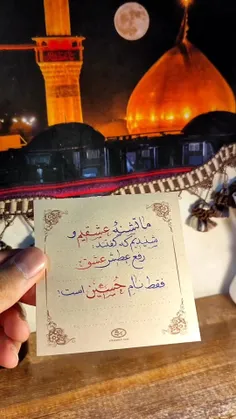 ما تشنهٔ عشقیم و
شنیدیم که گفتند:
رفع عطش عشق
فقط نام حسین است!